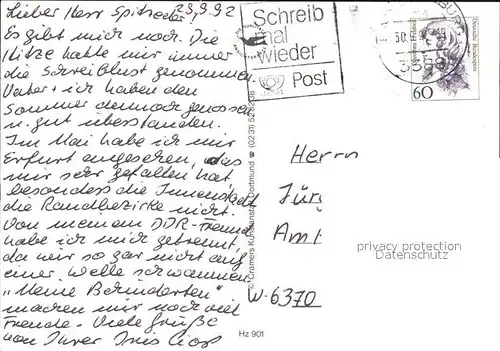 Lieber Herr Spitzeder! 23.9.92
Es gibt mich noch. Die
Hitze hatte mir immer
die Schreiblust genommen.
Vater + ich haben den
Sommer dennoch genossen
u. gut überstanden.
Im Mai habe ich mir
Erfurt angesehen, das
mir sehr gefallen hat
besonders die Innenstadt
die Randbezirke nicht.
Von meinem DDR-Freund
habe ich mich getrennt,
da wir so gar nicht auf
einer Welle schwammen.
"Meine Behinderten"
machen mir noch viel
Freude. Viele Grüße
von Ihrer Iris
Schreib
mal
wieder
Post
30.
60
Deutsche Bundespost
© Cramers Kunstanstalt Dortmund ☎ (0231)
Hz 901
Herrn
Jürg
Amt
W-6370
privacy protection
watermark